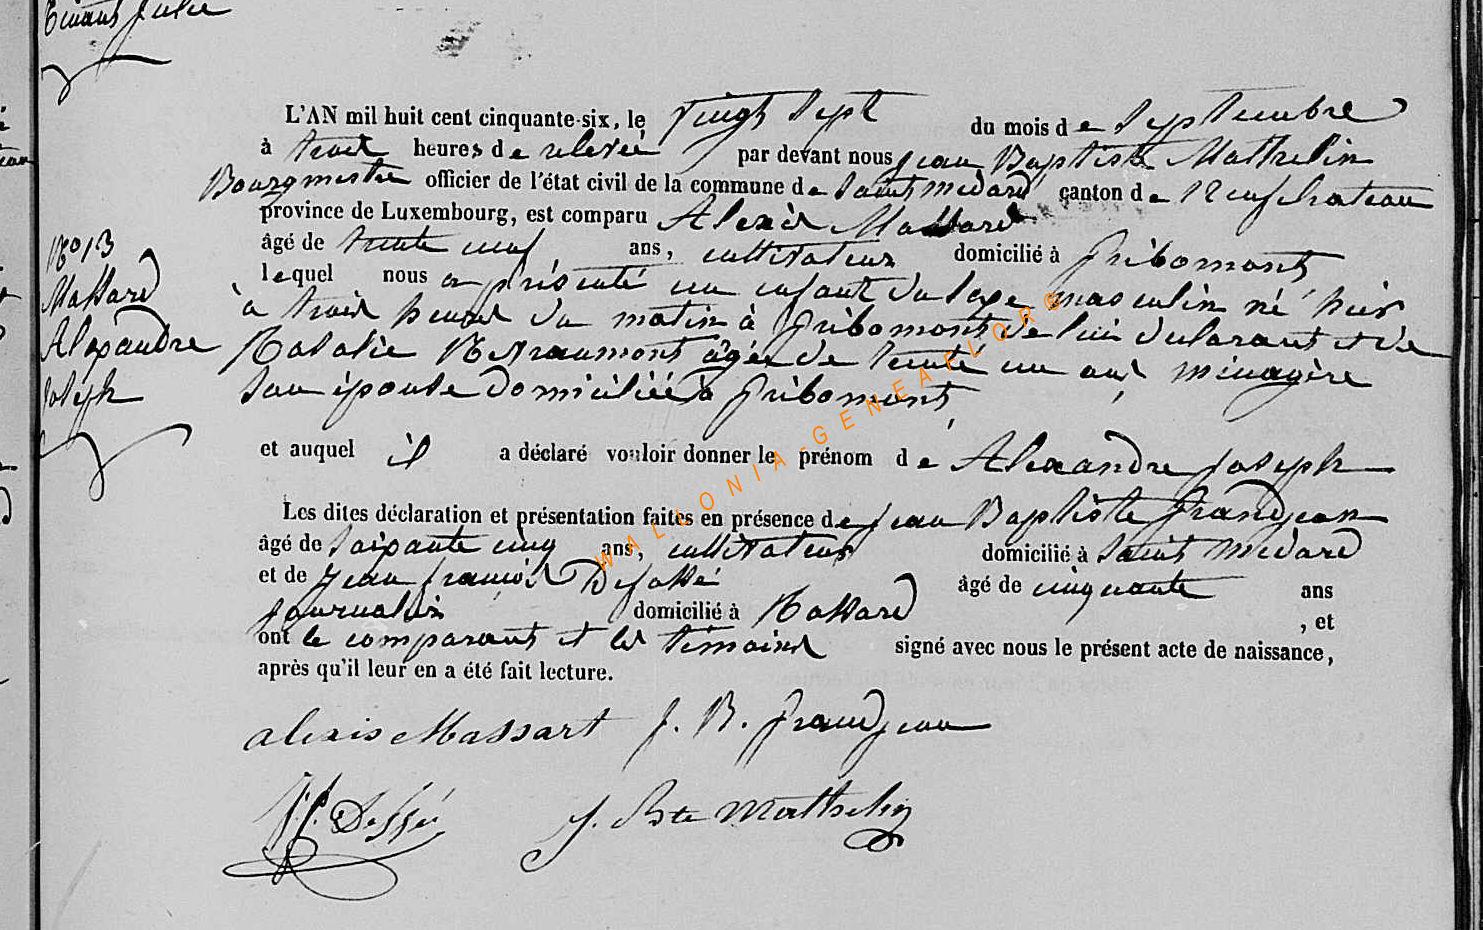 Tinant Julie
L'AN mil huit cent cinquante-six, le vingt sept du mois de Septembre
à trois heures de relevée par devant nous Jean Baptiste Mathelin
Bourgmestre officier de l'état civil de la commune de Saint Médard canton de Neufchateau
province de Luxembourg, est comparu Alexis Massard
âgé de trente neuf ans, cultivateur domicilié à Gribomont
lequel nous a présenté un enfant du sexe masculin né hier
à trois heures du matin à Gribomont de lui déclarant et de
Rosalie agée de trente un ans ménagère
son épouse domiciliée à Gribomont
et auquel il a déclaré vouloir donner le prénom de Alexandre Joseph
Les dites déclaration et présentation faites en présence de Jean Baptiste Grandjean
âgé de soixante cinq ans, cultivateur domicilié à Saint Médard
et de Jean François âgé de cinquante ans
journalier domicilié à Rossard , et
ont le comparant et les témoins signé avec nous le présent acte de naissance,
après qu'il leur en a été fait lecture.
N° 13
Massard
Alexandre
Joseph
alexis Massart J. B. Grandjean
J. Bte Mathelin
WALLONIA-GENEAFLORE